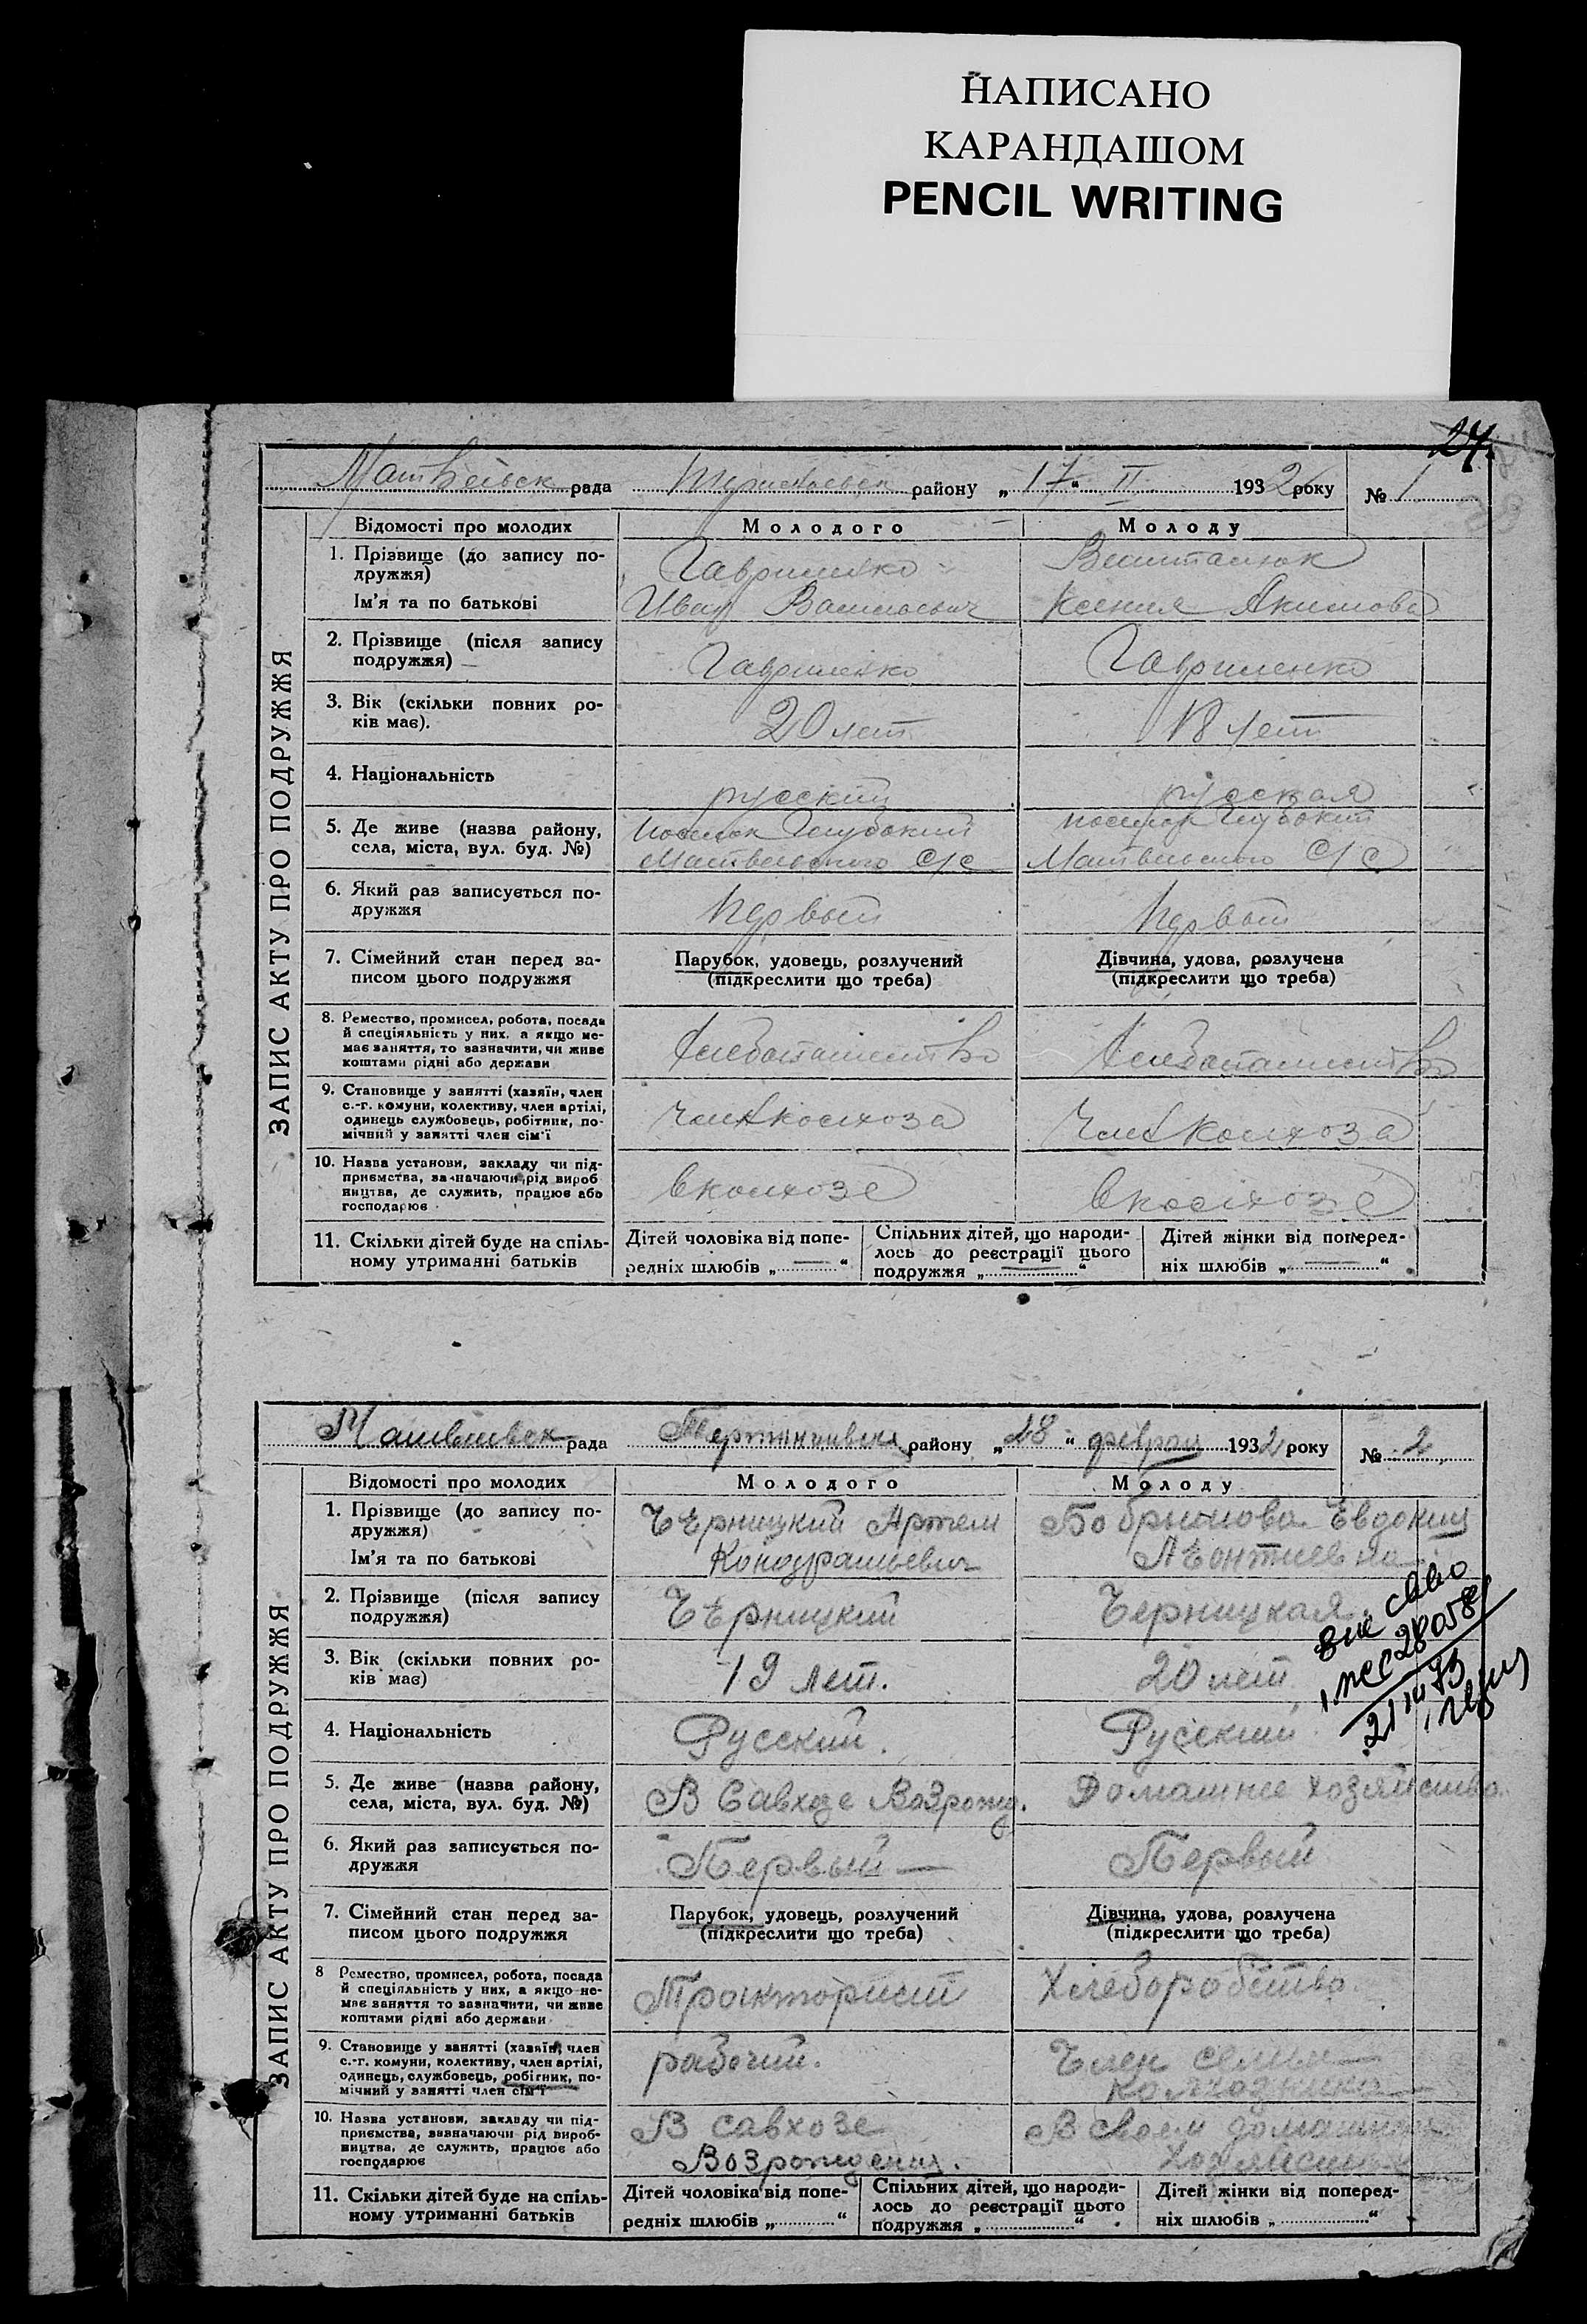 НАПИСАНО
КАРАНДАШОМ
PENCIL WRITING
24.
рада району „17“ II 1932 року № 1
ЗАПИС АКТУ ПРО ПОДРУЖЖЯ
Відомості про молодих Молодого Молоду
1. Прізвище (до запису по-
дружжя)
Гавриленко
Ім'я та по батькові Иван Васильевич Ксения Якимова
2. Прізвище (після запису
подружжя)
Гавриленко Гавриленко
3. Вік (скільки повних ро-
ків має).
20 лет 18 лет
4. Національність русский русская
5. Де живе (назва району,
села, міста, вул. буд. №)
поселок Глубокий поселок Глубокий
Матвеевского С/С Матвеевского С/С
6. Який раз записується по-
дружжя
Первый Первый
7. Сімейний стан перед за-
писом цього подружжя
Парубок, удовець, розлучений
(підкреслити що треба)
Дівчина, удова, розлучена
(підкреслити що треба)
8. Ремество, промисел, робота, посада
й спеціяльність у них, а якщо не-
має заняття, то зазначити, чи живе
коштами рідні або держави
Хлебопашество Хлебопашество
9. Становище у занятті (хазяїн, член
с.-г. комуни, колективу, член артілі,
одинець службовець, робітник, по-
мічний у занятті член сім'ї
Член колхоза Член колхоза
10. Назва установи, закладу чи під-
приємства, зазначаючи рід вироб
ництва, де служить, працює або
господарює
в колхозе в колхозе
11. Скільки дітей буде на спіль-
ному утриманні батьків
Дітей чоловіка від попе-
редніх шлюбів „ — “
Спільних дітей, що народи-
лось до реєстрації цього
подружжя „ — “
Дітей жінки від поперед-
ніх шлюбів „ — “
рада району „28“ феврал 1932 року № 2
ЗАПИС АКТУ ПРО ПОДРУЖЖЯ
Відомості про молодих Молодого Молоду
1. Прізвище (до запису по-
дружжя)
Черницкий Артем Евдокия
Ім'я та по батькові Кондратьевич Леонтиевна
2. Прізвище (після запису
подружжя)
Черницкий Черницкая
3. Вік (скільки повних ро-
ків має)
19 лет. 20 лет
4. Національність Русский. Русский
5. Де живе (назва району,
села, міста, вул. буд. №)
В Савхозе Возрожд. Домашнее хозяйство.
6. Який раз записується по-
дружжя
Первый — Первый
7. Сімейний стан перед за-
писом цього подружжя
Парубок, удовець, розлучений
(підкреслити що треба)
Дівчина, удова, розлучена
(підкреслити що треба)
8 Ремество, промисел, робота, посада
й спеціяльність у них, а якщо не-
має заняття то зазначити, чи живе
коштами рідні або держави
Тракторист Хлеборобство
9. Становище у занятті (хазяїн, член
с.-г. комуни, колективу, член артілі,
одинець, службовець, робітник, по-
мічний у занятті член сім'ї
рабочий. Член семьи
колхозника
10. Назва установи, закладу чи під-
приємства, зазначаючи рід вироб-
ництва, де служить, працює або
господарює
В савхозе В своем домашнем
Возрождения. хозяйстве
11. Скільки дітей буде на спіль-
ному утриманні батьків
Дітей чоловіка від попе-
редніх шлюбів „ “
Спільних дітей, що народи-
лось до реєстрації цього
подружжя „ “
Дітей жінки від поперед-
ніх шлюбів „ “